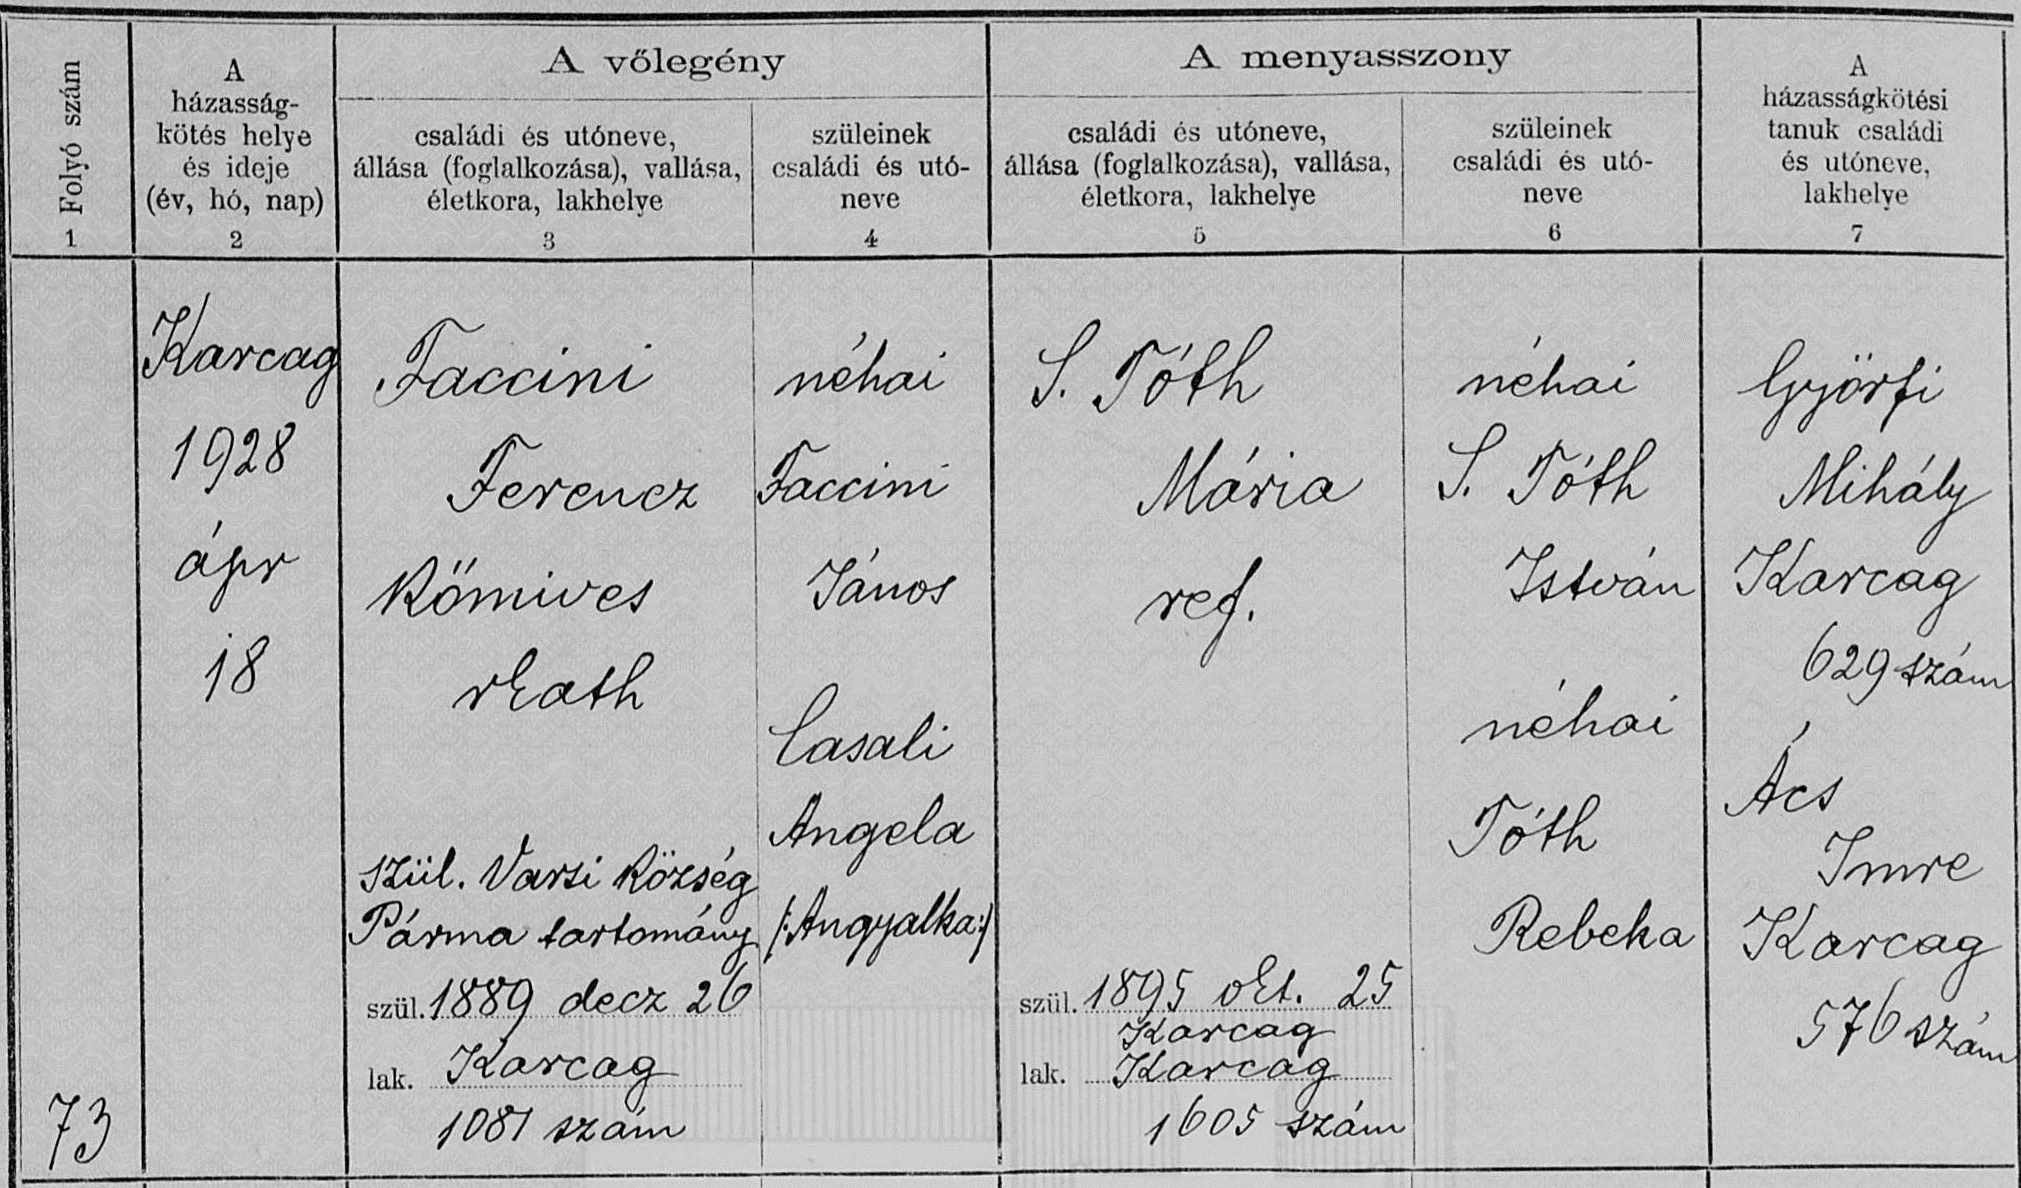 Folyó szám
1
A
házasság-
kötés helye
és ideje
(év, hó, nap)
2
A vőlegény
családi és utóneve,
állása (foglalkozása), vallása,
életkora, lakhelye
3
szüleinek
családi és utó-
neve
4
A menyasszony
családi és utóneve,
állása (foglalkozása), vallása,
életkora, lakhelye
5
szüleinek
családi és utó-
neve
6
A
házasságkötési
tanuk családi
és utóneve,
lakhelye
7
73
Karcag
1928
ápr
18
Faccini
Ferencz
kőmives
r kath
szül. Varsi község
Párma tartomány
szül. 1889 decz 26
lak. Karcag
1081 szám
néhai
Faccini
János
Casali
Angela
/:Angyalka:/
S. Tóth
Mária
ref.
szül. 1895 okt. 25
Karcag
lak. Karcag
1605 szám
néhai
S. Tóth
István
néhai
Tóth
Rebeka
Györfi
Mihály
Karcag
629 szám
Ács
Imre
Karcag
576 szám